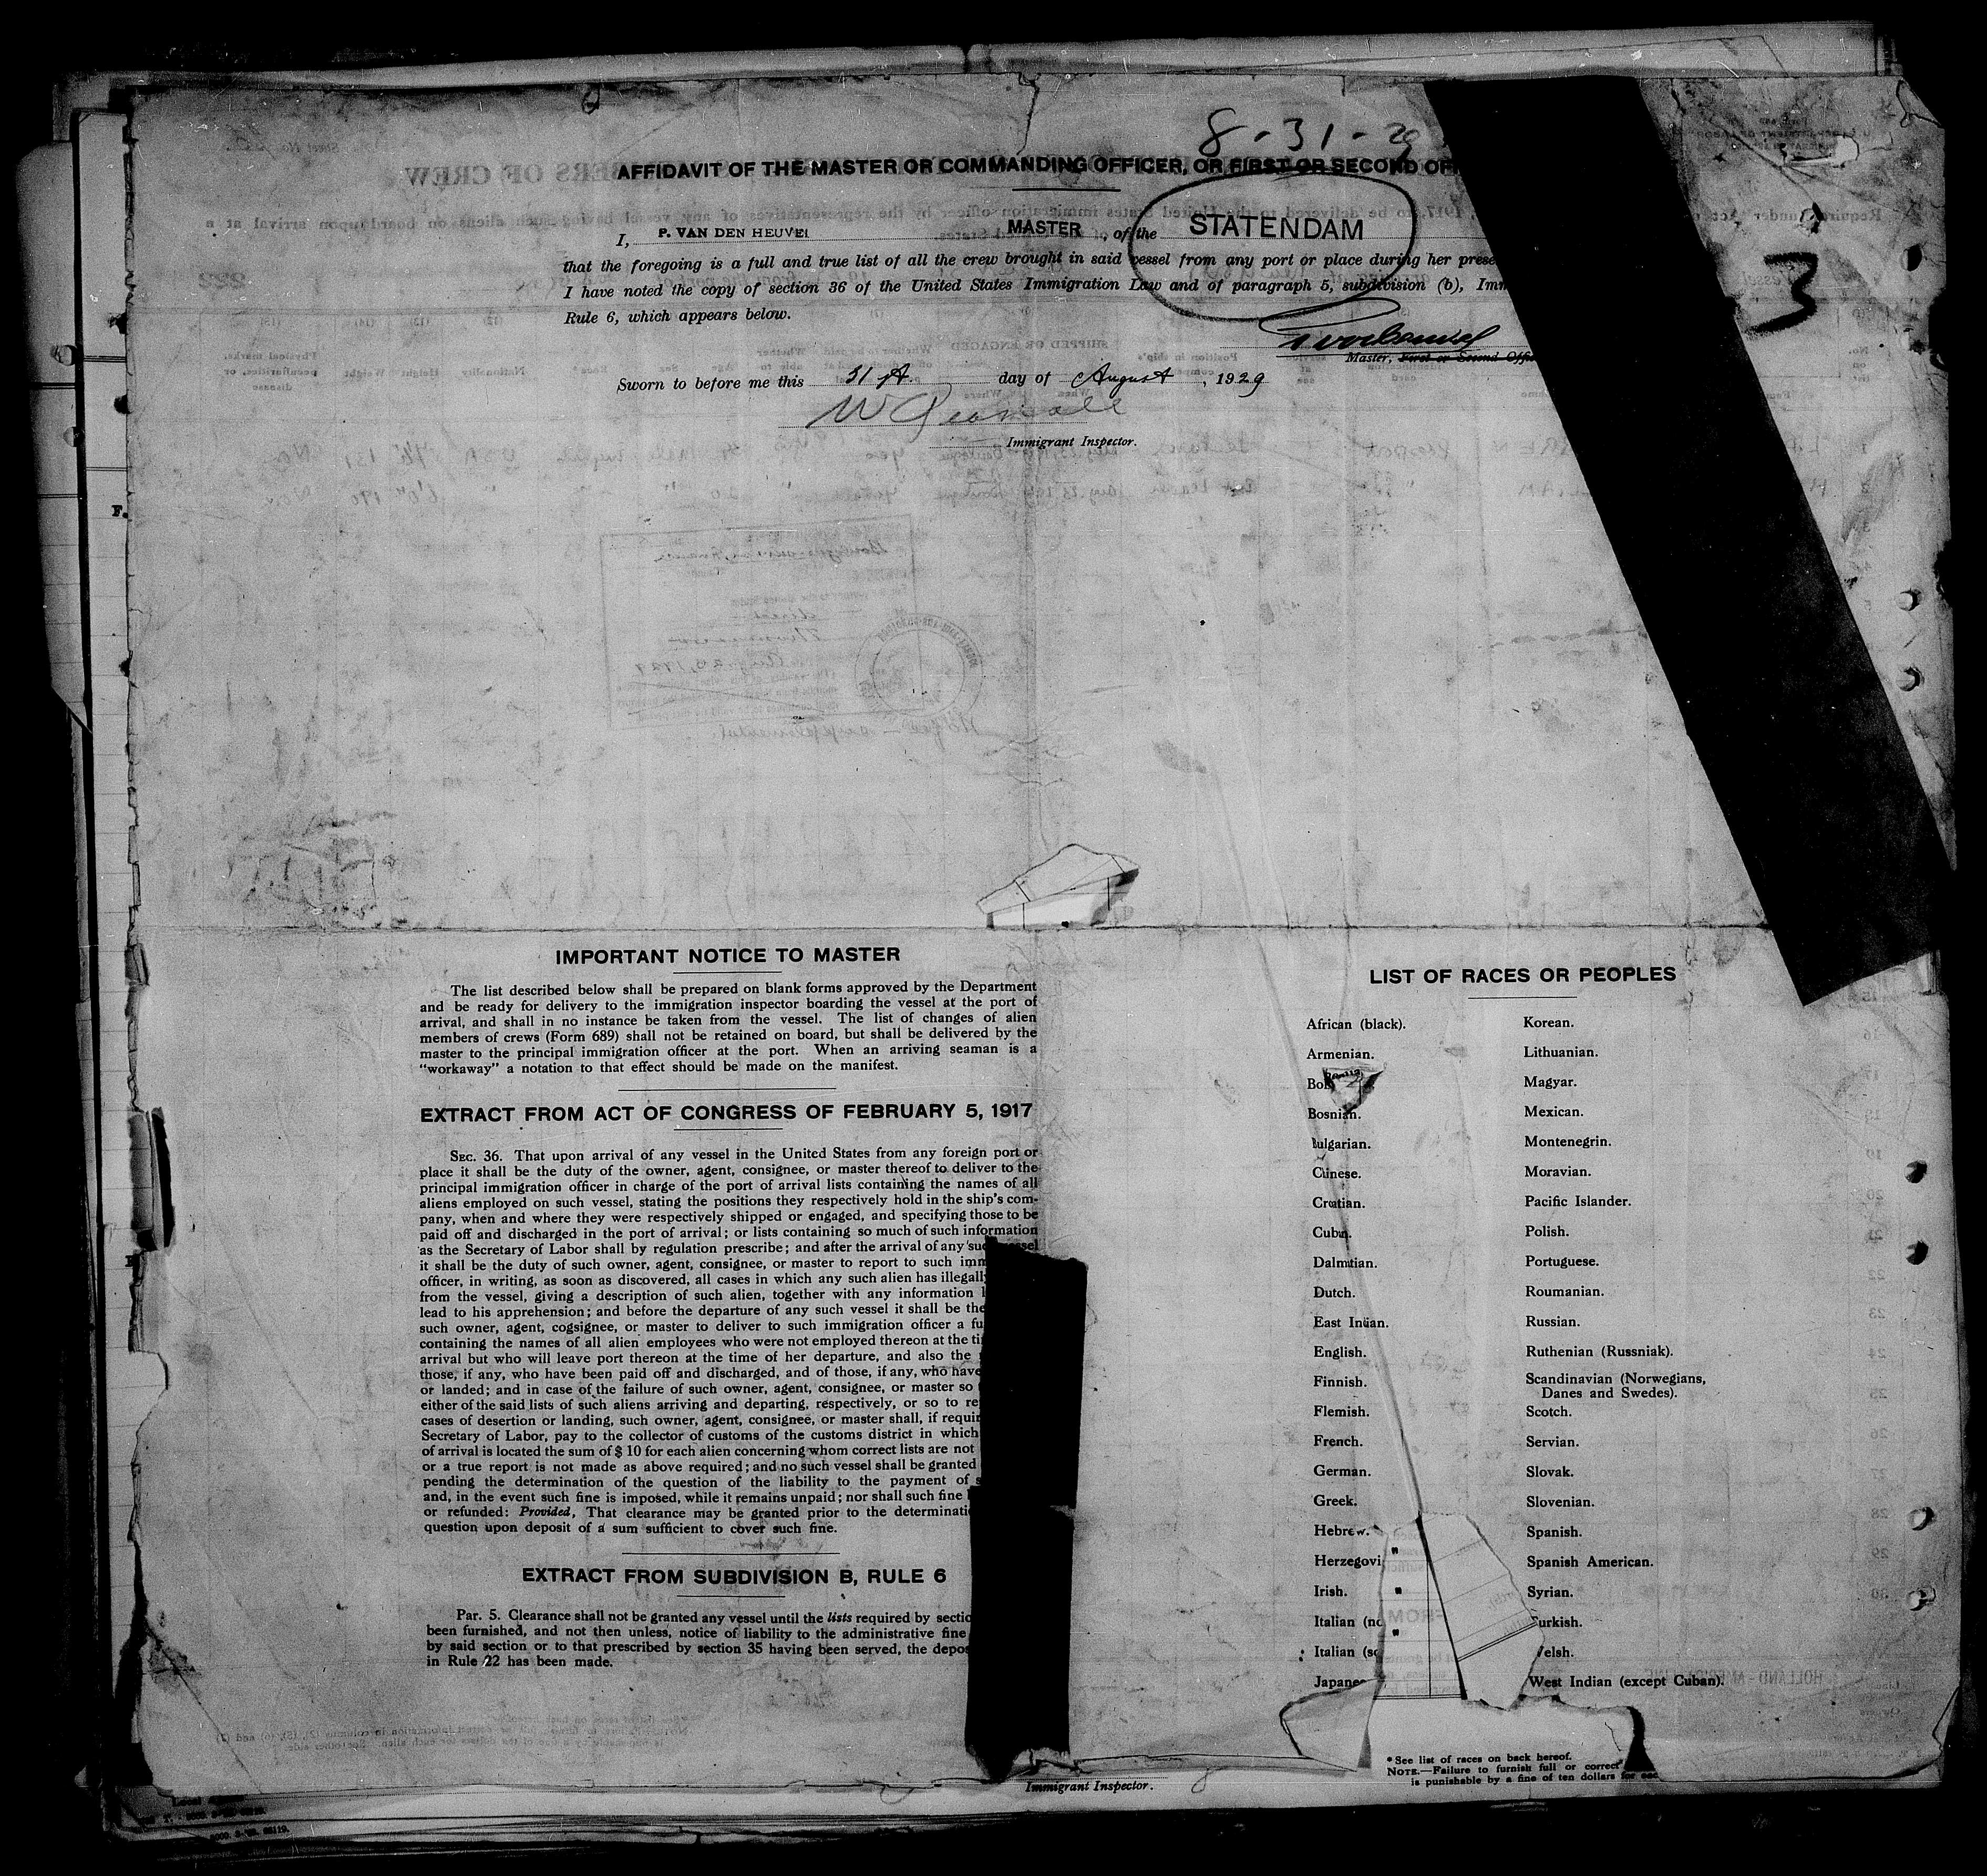 8-31-29
AFFIDAVIT OF THE MASTER OR COMMANDING OFFICER, OR FIRST OR SECOND OF
I, P. VAN DEN HEUVEL MASTER, of the STATENDAM
3
that the foregoing is a full and true list of all the crew brought in said vessel from any port or place during her prese
I have noted the copy of section 36 of the United States Immigration Law and of paragraph 5, subdivision (b), Imm
Rule 6, which appears below.
Master, First or Second Offi
Sworn to before me this 31st day of August, 1929
Immigrant Inspector.
F.
IMPORTANT NOTICE TO MASTER
The list described below shall be prepared on blank forms approved by the Department
and be ready for delivery to the immigration inspector boarding the vessel at the port of
arrival, and shall in no instance be taken from the vessel. The list of changes of alien
members of crews (Form 689) shall not be retained on board, but shall be delivered by the
master to the principal immigration officer at the port. When an arriving seaman is a
"workaway" a notation to that effect should be made on the manifest.
EXTRACT FROM ACT OF CONGRESS OF FEBRUARY 5, 1917
SEC. 36. That upon arrival of any vessel in the United States from any foreign port or
place it shall be the duty of the owner, agent, consignee, or master thereof to deliver to the
principal immigration officer in charge of the port of arrival lists containing the names of all
aliens employed on such vessel, stating the positions they respectively hold in the ship's com-
pany, when and where they were respectively shipped or engaged, and specifying those to be
paid off and discharged in the port of arrival; or lists containing so much of such information
as the Secretary of Labor shall by regulation prescribe; and after the arrival of any such vessel
it shall be the duty of such owner, agent, consignee, or master to report to such imm
officer, in writing, as soon as discovered, all cases in which any such alien has illegall
from the vessel, giving a description of such alien, together with any information
lead to his apprehension; and before the departure of any such vessel it shall be the
such owner, agent, cogsignee, or master to deliver to such immigration officer a fu
containing the names of all alien employees who were not employed thereon at the ti
arrival but who will leave port thereon at the time of her departure, and also the
those, if any, who have been paid off and discharged, and of those, if any, who have
or landed; and in case of the failure of such owner, agent, consignee, or master so
either of the said lists of such aliens arriving and departing, respectively, or so to re
cases of desertion or landing, such owner, agent, consignee, or master shall, if requir
Secretary of Labor, pay to the collector of customs of the customs district in which
of arrival is located the sum of $10 for each alien concerning whom correct lists are not
or a true report is not made as above required; and no such vessel shall be granted
pending the determination of the question of the liability to the payment of s
and, in the event such fine is imposed, while it remains unpaid; nor shall such fine
or refunded: Provided, That clearance may be granted prior to the determinati
question upon deposit of a sum sufficient to cover such fine.
EXTRACT FROM SUBDIVISION B, RULE 6
Par. 5. Clearance shall not be granted any vessel until the lists required by sectio
been furnished, and not then unless, notice of liability to the administrative fine
by said section or to that prescribed by section 35 having been served, the depos
in Rule 22 has been made.
LIST OF RACES OR PEOPLES
African (black).
Armenian.
Boh
Bosnian.
Bulgarian.
Chinese.
Croatian.
Cuban.
Dalmatian.
Dutch.
East Indian.
English.
Finnish.
Flemish.
French.
German.
Greek.
Hebrew.
Herzegovi
Irish.
Italian (no
Italian (so
Japanes
Korean.
Lithuanian.
Magyar.
Mexican.
Montenegrin.
Moravian.
Pacific Islander.
Polish.
Portuguese.
Roumanian.
Russian.
Ruthenian (Russniak).
Scandinavian (Norwegians,
Danes and Swedes).
Scotch.
Servian.
Slovak.
Slovenian.
Spanish.
Spanish American.
Syrian.
Turkish.
Welsh.
West Indian (except Cuban).
*See list of races on back hereof.
NOTE.—Failure to furnish full or correct
is punishable by a fine of ten dollars for eac
Immigrant Inspector.